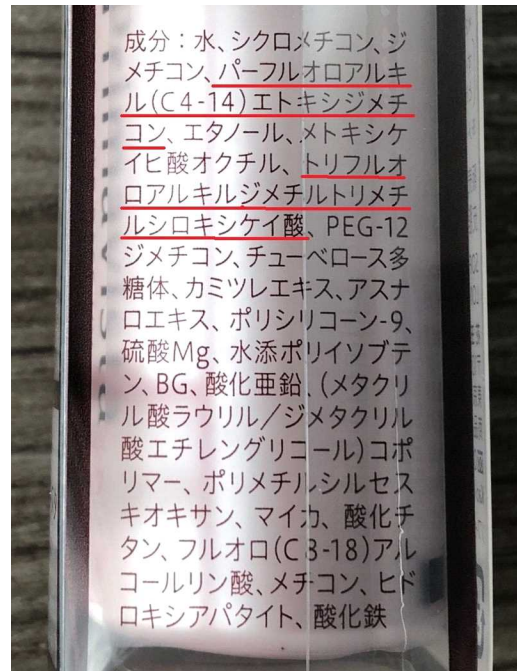 成分：水、シクロメチコン、ジ
メチコン、パーフルオロアルキ
ル(C4-14)エトキシジメチ
コン、エタノール、メトキシケ
イヒ酸オクチル、トリフルオ
ロアルキルジメチルトリメチ
ルシロキシケイ酸、PEG-12
ジメチコン、チューベロース多
糖体、カミツレエキス、アスナ
ロエキス、ポリシリコーン-9、
硫酸Mg、水添ポリイソブテ
ン、BG、酸化亜鉛、(メタクリ
ル酸ラウリル／ジメタクリル
酸エチレングリコール)コポ
リマー、ポリメチルシルセス
キオキサン、マイカ、酸化チ
タン、フルオロ(C8-18)アル
コールリン酸、メチコン、ヒド
ロキシアパタイト、酸化鉄